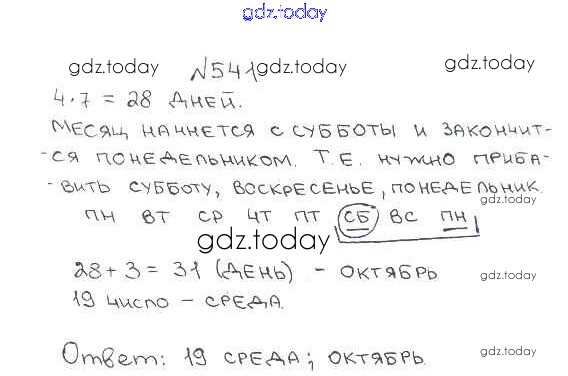 gdz.today
gdz.today №541 gdz.today gdz.today
4·7 = 28 ДНЕЙ.
МЕСЯЦ НАЧНЕТСЯ С СУББОТЫ И ЗАКОНЧИТ-
-СЯ ПОНЕДЕЛЬНИКОМ. Т.Е. НУЖНО ПРИБА-
-ВИТЬ СУББОТУ, ВОСКРЕСЕНЬЕ, ПОНЕДЕЛЬНИК.
gdz.today
ПН ВТ СР ЧТ ПТ СБ ВС ПН
gdz.today
28 + 3 = 31 (ДЕНЬ) - ОКТЯБРЬ gdz.today
19 ЧИСЛО - СРЕДА.
Ответ: 19 СРЕДА; ОКТЯБРЬ. gdz.today